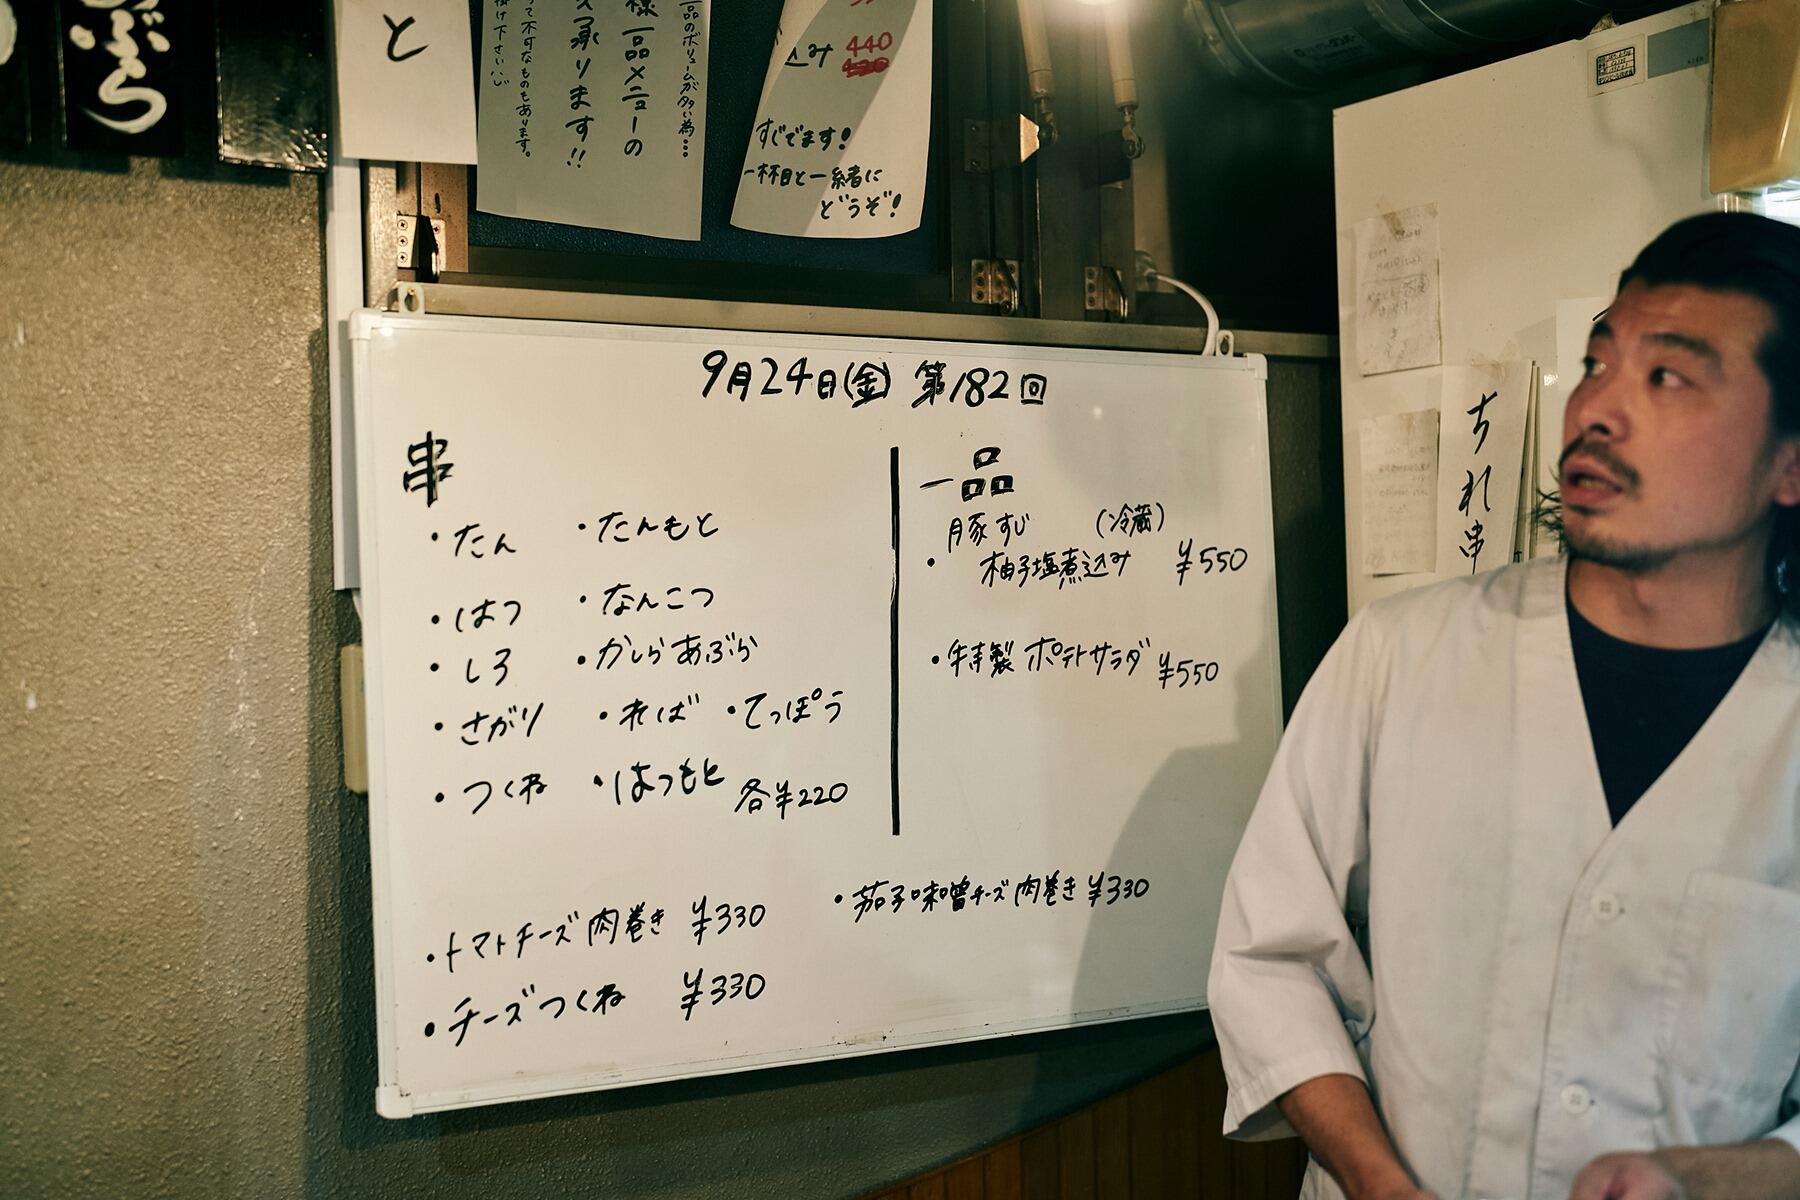 あぶら
と
一品のボリュームが多い為…
様一品メニューの
承ります!!
って不可なものもあります。
掛け下さい
込み 440
420
すぐでます!
一杯目と一緒に
どうぞ!
9月24日(金) 第182回
串
・たん ・たんもと
・はつ ・なんこつ
・しろ ・かしらあぶら
・さがり ・ればー ・てっぽう
・つくね ・はつもと 各¥220
・トマトチーズ肉巻き ¥330
・チーズつくね ¥330
一品
豚すじ (冷蔵)
・柚子塩煮込み ¥550
・特製ポテトサラダ ¥550
・茄子味噌チーズ肉巻き ¥330
ちれ串